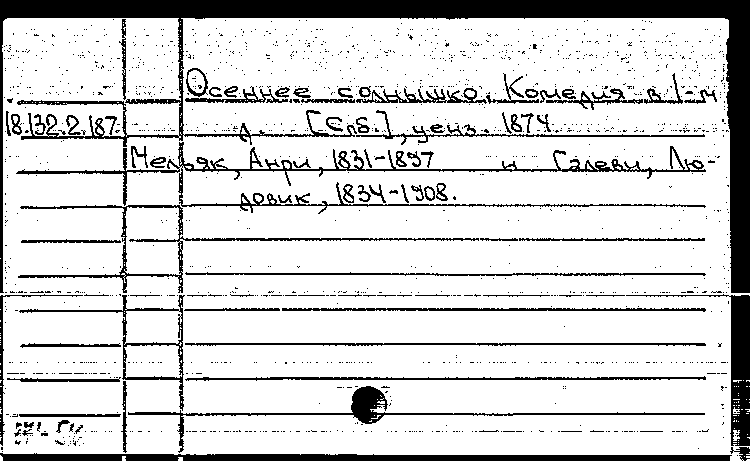 Осеннее солнышко. Комедия в 1-м
18.132.2.187. д. [Спб.], ценз. 1874
Мельяк, Анри, 1831-1897 и Галеви, Лю-
довик, 1834-1908.